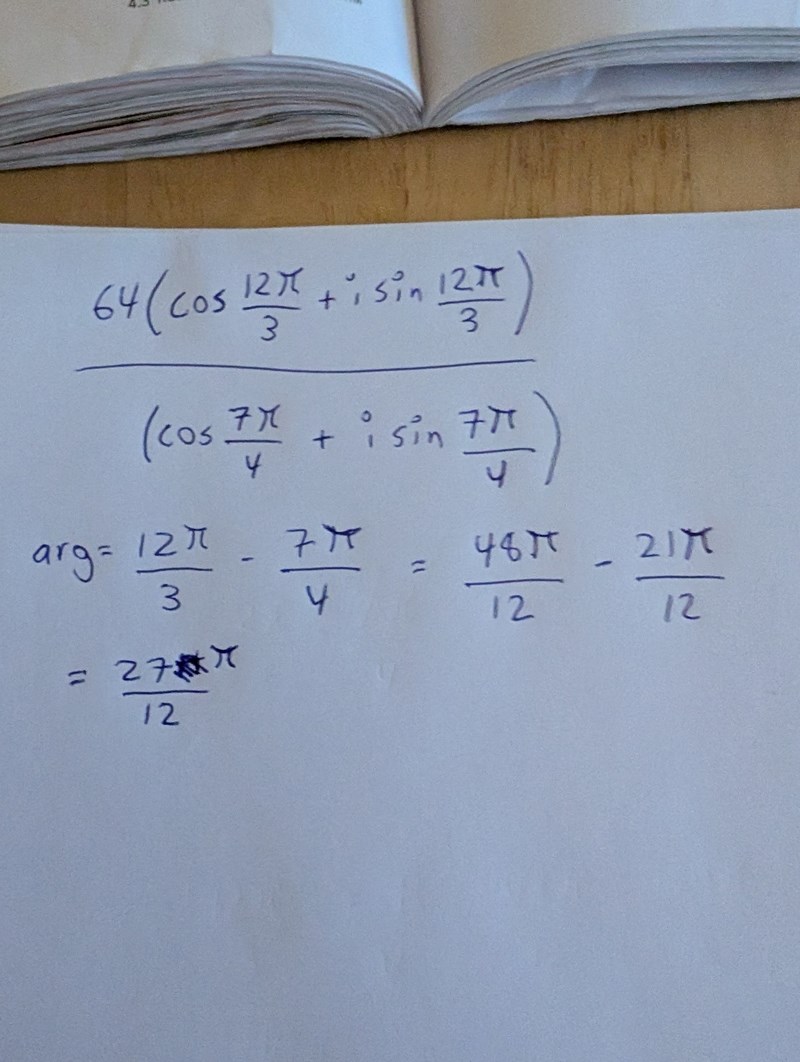 64(cos 12π/3 + i sin 12π/3)
(cos 7π/4 + i sin 7π/4)
arg= 12π/3 - 7π/4 = 48π/12 - 21π/12
= 27π/12